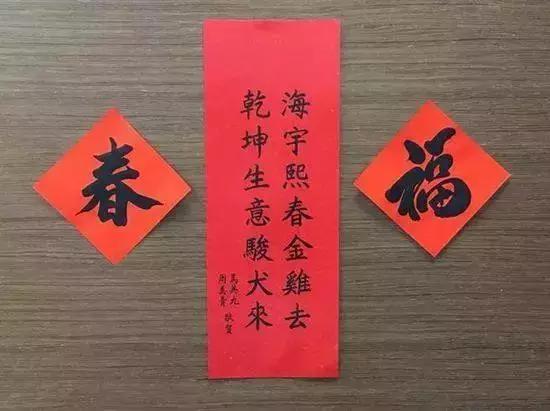 福
海宇熙春金雞去
乾坤生意駿犬來
馬英九
周美青
敬賀
春